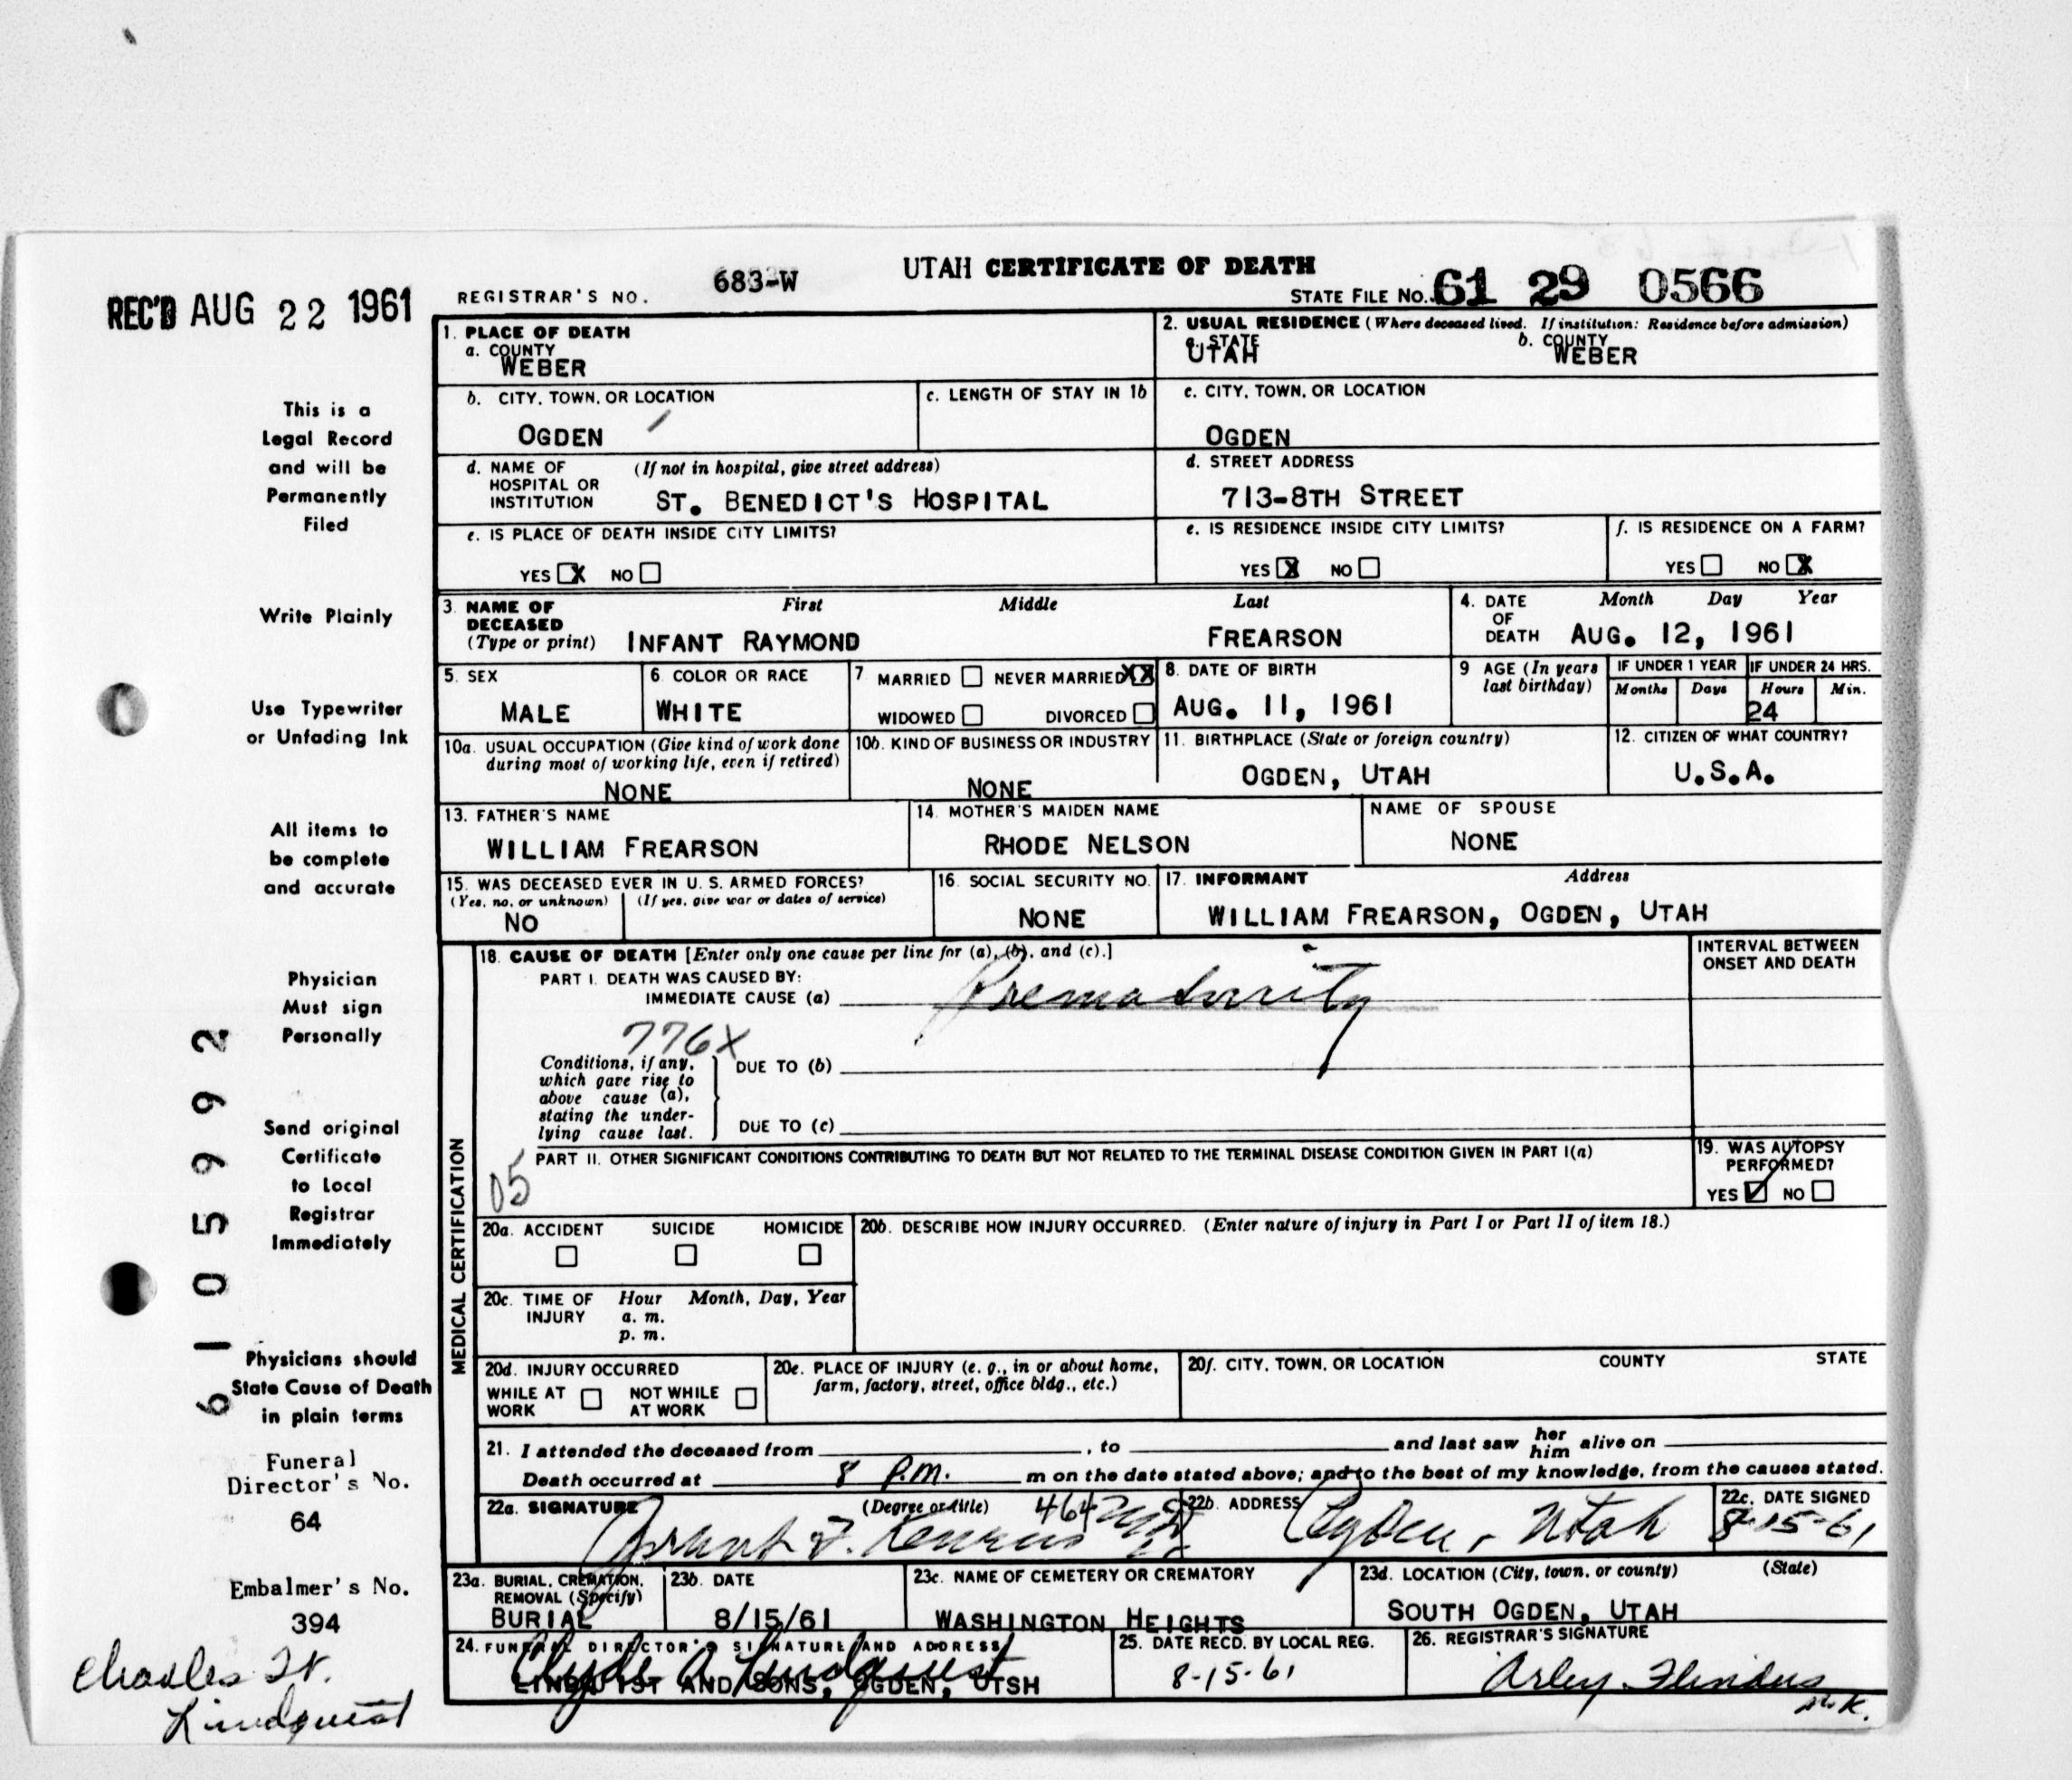 REC'D AUG 22 1961
REGISTRAR'S NO. 683-W
UTAH CERTIFICATE OF DEATH
STATE FILE NO. 61 29 0566
This is a
Legal Record
and will be
Permanently
Filed
Write Plainly
Use Typewriter
or Unfading Ink
All items to
be complete
and accurate
Physician
Must sign
Personally
Send original
Certificate
to Local
Registrar
Immediately
Physicians should
State Cause of Death
in plain terms
Funeral
Director's No.
64
Embalmer's No.
394
Charles
Lindquist
61059992
1. PLACE OF DEATH
a. COUNTY
WEBER
2. USUAL RESIDENCE (Where deceased lived. If institution: Residence before admission)
a. STATE b. COUNTY
UTAH WEBER
b. CITY, TOWN, OR LOCATION
OGDEN
c. LENGTH OF STAY IN 1b
c. CITY, TOWN, OR LOCATION
OGDEN
d. NAME OF (If not in hospital, give street address)
HOSPITAL OR
INSTITUTION ST. BENEDICT'S HOSPITAL
d. STREET ADDRESS
713-8TH STREET
e. IS PLACE OF DEATH INSIDE CITY LIMITS?
YES X NO
e. IS RESIDENCE INSIDE CITY LIMITS?
YES X NO
f. IS RESIDENCE ON A FARM?
YES NO X
3. NAME OF First Middle Last
DECEASED
(Type or print) INFANT RAYMOND FREARSON
4. DATE Month Day Year
OF
DEATH AUG. 12, 1961
5. SEX
MALE
6. COLOR OR RACE
WHITE
7 MARRIED NEVER MARRIED XX
WIDOWED DIVORCED
8. DATE OF BIRTH
AUG. 11, 1961
9 AGE (In years
last birthday)
IF UNDER 1 YEAR
Months Days
IF UNDER 24 HRS.
Hours Min.
24
10a. USUAL OCCUPATION (Give kind of work done
during most of working life, even if retired)
NONE
10b. KIND OF BUSINESS OR INDUSTRY
NONE
11. BIRTHPLACE (State or foreign country)
OGDEN, UTAH
12. CITIZEN OF WHAT COUNTRY?
U.S.A.
13. FATHER'S NAME
WILLIAM FREARSON
14. MOTHER'S MAIDEN NAME
RHODE NELSON
NAME OF SPOUSE
NONE
15. WAS DECEASED EVER IN U. S. ARMED FORCES?
(Yes, no, or unknown) (If yes, give war or dates of service)
NO
16. SOCIAL SECURITY NO.
NONE
17. INFORMANT Address
WILLIAM FREARSON, OGDEN, UTAH
MEDICAL CERTIFICATION
18. CAUSE OF DEATH [Enter only one cause per line for (a), (b), and (c).]
PART I. DEATH WAS CAUSED BY:
IMMEDIATE CAUSE (a) Prematurity
776X
Conditions, if any,
which gave rise to
above cause (a),
stating the under-
lying cause last.
DUE TO (b)
DUE TO (c)
INTERVAL BETWEEN
ONSET AND DEATH
PART II. OTHER SIGNIFICANT CONDITIONS CONTRIBUTING TO DEATH BUT NOT RELATED TO THE TERMINAL DISEASE CONDITION GIVEN IN PART I(a)
05
19. WAS AUTOPSY
PERFORMED?
YES ✓ NO
20a. ACCIDENT SUICIDE HOMICIDE
20b. DESCRIBE HOW INJURY OCCURRED. (Enter nature of injury in Part I or Part II of item 18.)
20c. TIME OF Hour Month, Day, Year
INJURY a. m.
p. m.
20d. INJURY OCCURRED
WHILE AT NOT WHILE
WORK AT WORK
20e. PLACE OF INJURY (e. g., in or about home,
farm, factory, street, office bldg., etc.)
20f. CITY, TOWN, OR LOCATION COUNTY STATE
21. I attended the deceased from , to and last saw her him alive on
Death occurred at 8 P.M. m on the date stated above; and to the best of my knowledge, from the causes stated.
22a. SIGNATURE (Degree or title)
Grant F.
464
22b. ADDRESS
Ogden, Utah
22c. DATE SIGNED
8-15-61
23a. BURIAL, CREMATION,
REMOVAL (Specify)
BURIAL
23b. DATE
8/15/61
23c. NAME OF CEMETERY OR CREMATORY
WASHINGTON HEIGHTS
23d. LOCATION (City, town, or county) (State)
SOUTH OGDEN, UTAH
24. FUNERAL DIRECTOR'S SIGNATURE AND ADDRESS
Clyde A Lindquist
LINDQUIST AND SONS, OGDEN, UTSH
25. DATE RECD. BY LOCAL REG.
8-15-61
26. REGISTRAR'S SIGNATURE
Arley Flinders